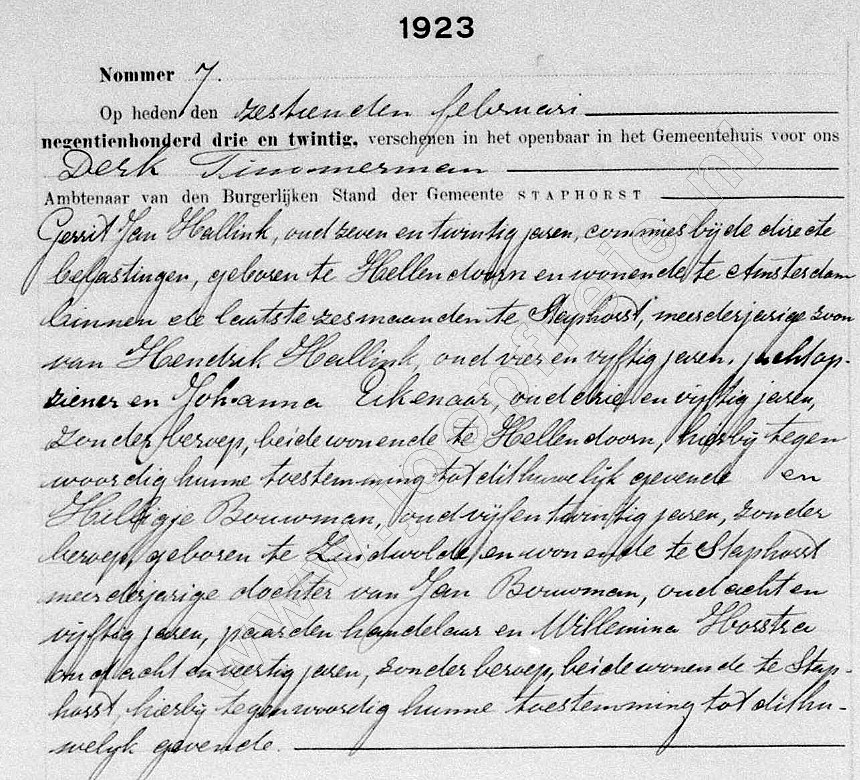 1923
Nommer 7.
Op heden den zestienden februari
negentienhonderd drie en twintig, verschenen in het openbaar in het Gemeentehuis voor ons
Derk Timmerman
Ambtenaar van den Burgerlijken Stand der Gemeente STAPHORST
Gerrit Jan Hallink, oud zeven en twintig jaren, commies bij de directe
belastingen, geboren te Hellendoorn en wonende te Amsterdam
binnen de laatste zes maanden te Staphorst, meerderjarige zoon
van Hendrik Hallink, oud vier en vijftig jaren, jachtop-
ziener en Johanna Eikenaar, oud drie en vijftig jaren,
zonder beroep, beide wonende te Hellendoorn, hierbij tegen
woordig hunne toestemming tot dit huwelijk gevende en
Hilligje Bouwman, oud vijf en twintig jaren, zonder
beroep, geboren te Zuidwolde, en wonende te Staphorst
meerderjarige dochter van Jan Bouwman, oud acht en
vijftig jaren, paardenhandelaar en Willemina Horstra
oud acht en veertig jaren, zonder beroep, beide wonende te Stap-
horst, hierbij tegenwoordig hunne toestemming tot dit hu-
welijk gevende.